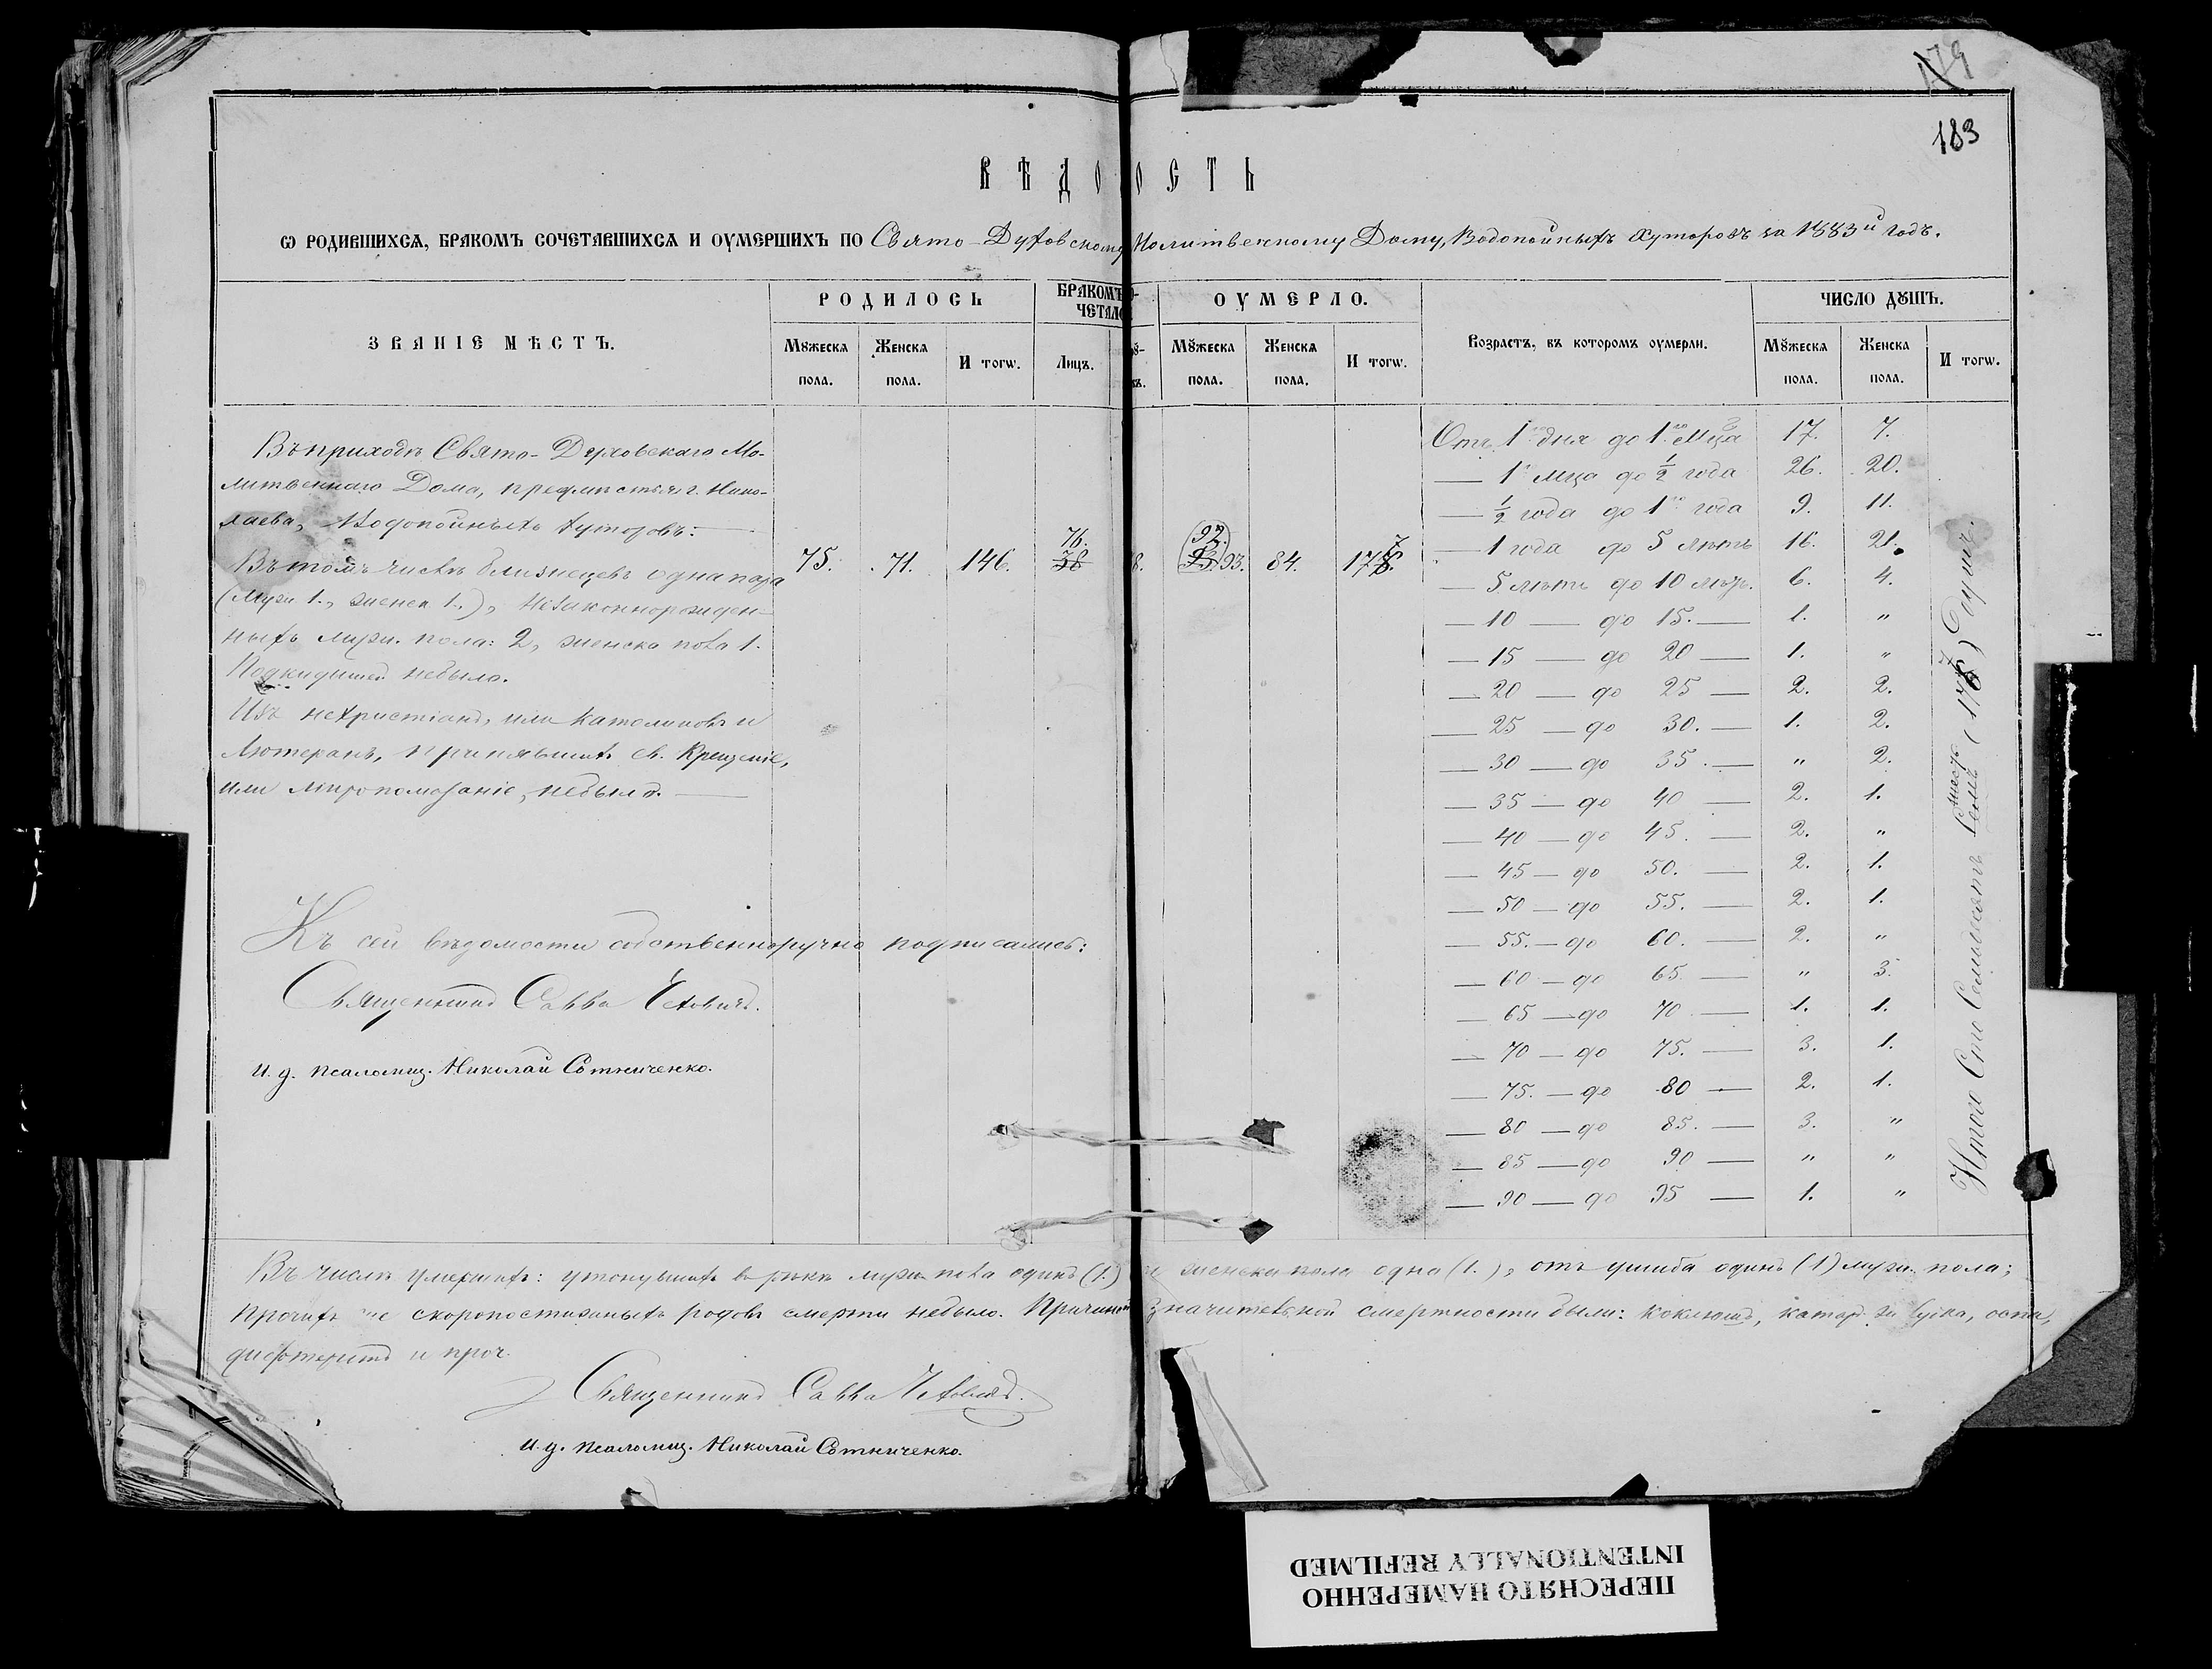 179
183
ВѢДО ОСТЬ
Ѡ РОДИВШИХСѦ, БРАКОМЪ СОЧЕТАВШИХСѦ И ОУМЕРШИХЪ ПО Свято-Духовскому Молитвенному Дому, Водопойныхъ Хуторовъ за 1883й годъ.
ЗВАНІЕ МѢСТЪ.
РОДИЛОСЬ
БРАКОМЪ О-
ЧЕТАЛО
ОУМЕРЛО.
Возрастъ, въ которомъ оумерли.
ЧИСЛО ДꙊШЪ.
Мꙋжеска пола.
Женска пола.
И тогѡ.
Лицъ.
Мꙋжеска пола.
Женска пола.
И тогѡ.
Мꙋжеска пола.
Женска пола.
И тогѡ.
Въ приходѣ Свято-Духовскаго Мо-
литвеннаго Дома, предмѣстья г. Нико-
лаева, Водопойныхъ хуторовъ:
Въ томъ числѣ близнецевъ одна пара
(Муж. 1., женск. 1.), Незаконнорожден-
ныхъ муж. пола: 2, женска пола 1.
Подкидышей небыло.
Изъ нехристіанъ, или католиковъ и
Лютеранъ, принявшихъ св. Крещеніе,
или мѵропомазаніе, небыло.
75. 71. 146. 76. 38 8. 92. 93. 93. 84. 1778.
Отъ 1го дня до 1го Мца 17. 7.
— 1 мца до ½ года 26. 20.
— ½ года до 1го года 9. 11.
— 1 года до 5 лѣтъ 16. 21.
— 5 лѣтъ до 10 лѣтъ. 6. 4.
— 10 — до 15. — 1. "
— 15 — до 20 — 1. "
— 20 — до 25 — 2. 2.
— 25 — до 30. — 1. 2.
— 30 — до 35. — " 2.
— 35 — до 40 — 2. 1.
— 40 — до 45. — 2. "
— 45 — до 50. — 2. 1.
— 50 — до 55. — 2. 1.
— 55. — до 60. — 2. "
— 60 — до 65 — " 3.
— 65 — до 70 — 1. 1.
— 70 — до 75. — 3. 1.
— 75. — до 80 — 2. 1.
— 80 — до 85. — 3. "
— 85 — до 90 — " "
— 90 — до 95 — 1. "
Итого Сто Семьдесятъ шесть Семь (176) 7 Душъ.
Къ сей вѣдомости собственноручно подписались:
Священникъ Савва Чехович.
И. д. псаломщ. Николай Сотниченко.
Въ числѣ умершихъ: утонувшихъ въ рѣкѣ муж. пола одинъ (1.) и женска пола одна (1.), отъ ушиба одинъ (1) муж. пола;
Прочихъ же скоропостижныхъ родовъ смерти небыло. Причиной значительной смертности были: коклюшъ, катаръ оспа,
дифтеритъ и проч.
Священникъ Савва Чехович.
И. д. псаломщ. Николай Сотниченко.
ПЕРЕСНЯТО НАМЕРЕННО
INTENTIONALLY REFILMED